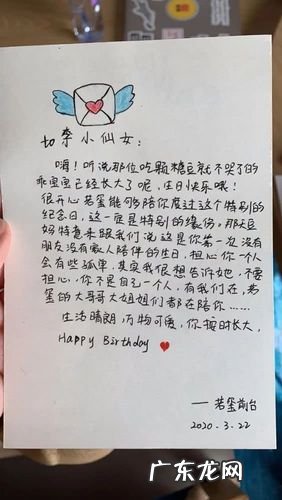 to 李小仙女：
嗨！听说那位吃颗糖豆就不哭了的
乖宝宝已经长大了呢，生日快乐哦！
很开心若莹能够陪你度过这个特别的
纪念日，这一定是特别的缘份。那天豆
妈特意来跟我们说这是你第一次没有
朋友没有家人陪伴的生日，担心你一个人
会有些孤单，其实我很想告诉她，不要
担心，你不是自己一个人，有我们在，若
莹的大哥哥大姐姐们都在陪你……
生活晴朗，万物可爱，你按时长大，
Happy Birthday
——若莹前台
2020.3.22
广东龙网